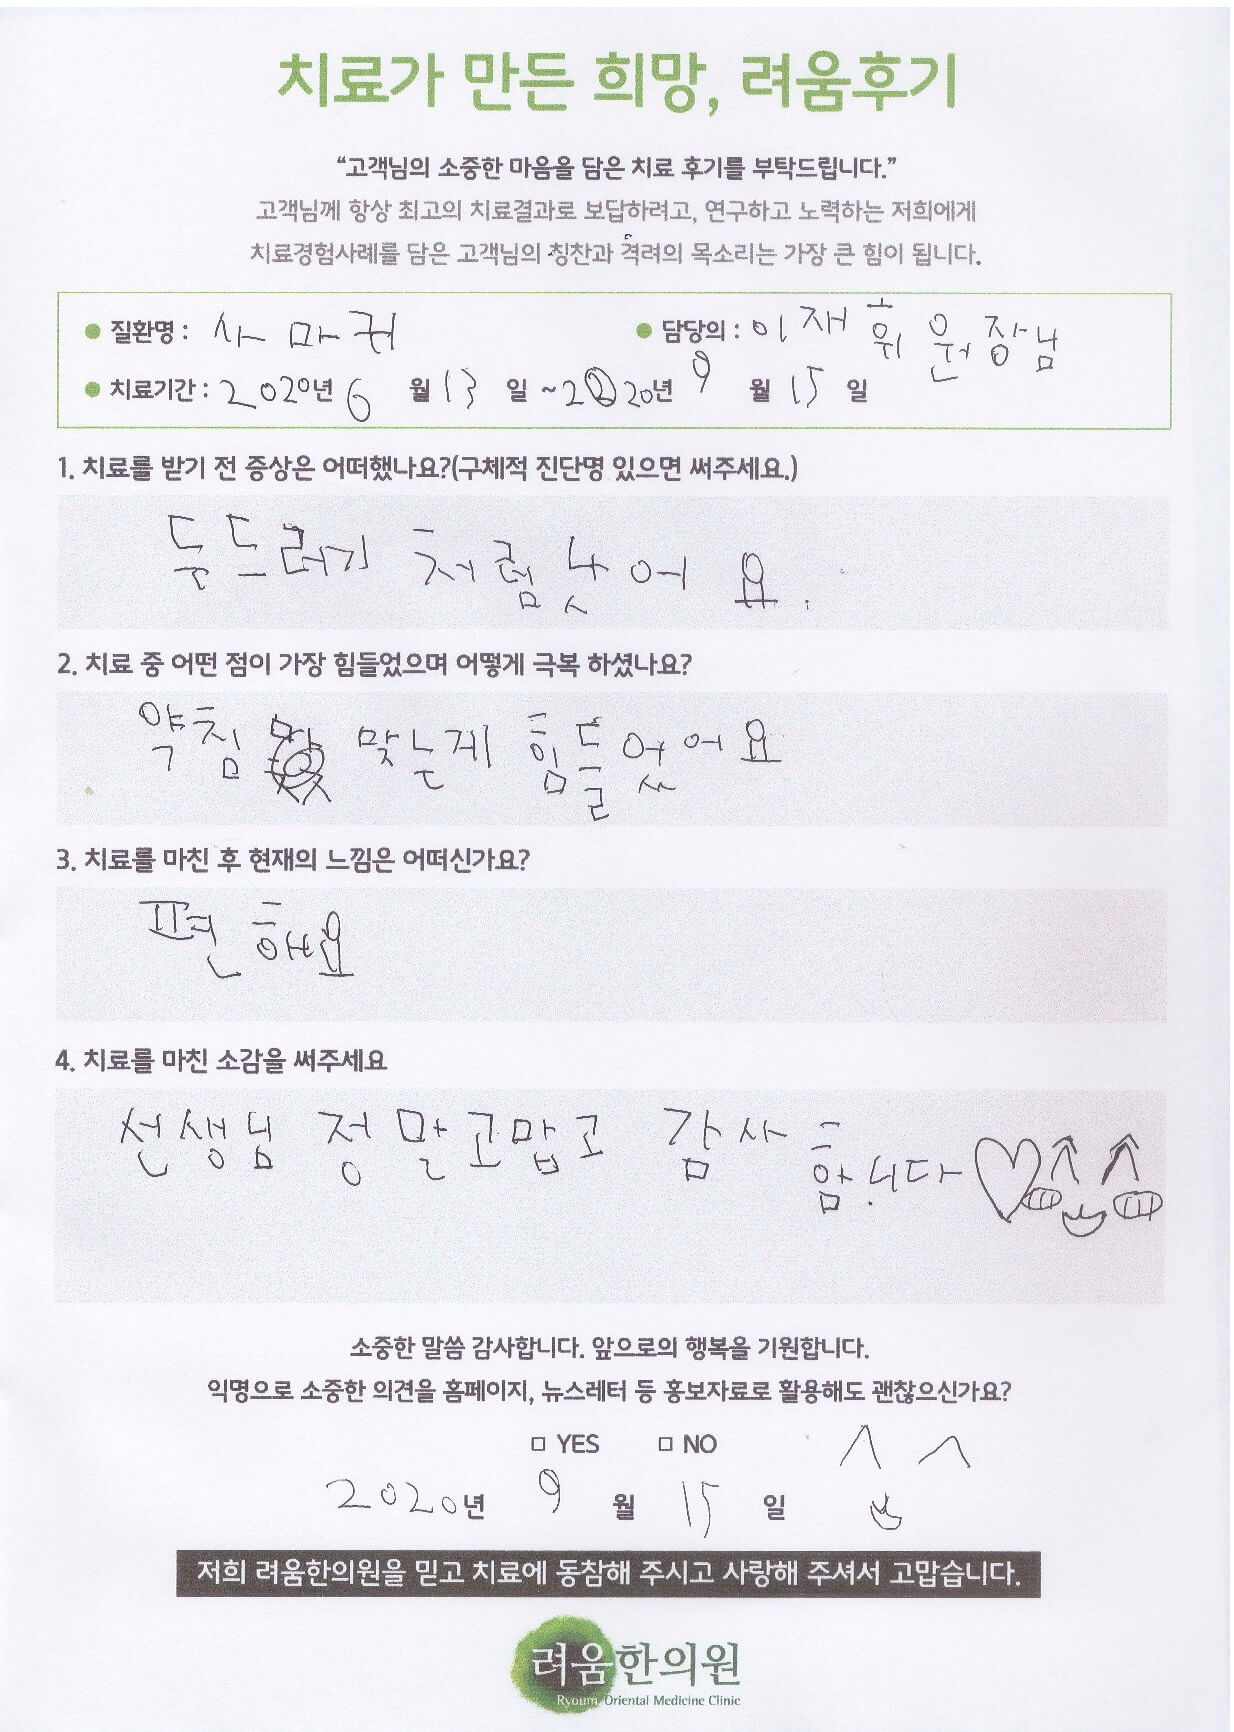 치료가 만든 희망, 려움후기
“고객님의 소중한 마음을 담은 치료 후기를 부탁드립니다.”
고객님께 항상 최고의 치료결과로 보답하려고, 연구하고 노력하는 저희에게
치료경험사례를 담은 고객님의 칭찬과 격려의 목소리는 가장 큰 힘이 됩니다.
● 질환명 : 사마귀 ● 담당의 : 이재휘 원장님
● 치료기간 : 2020년 6 월 13 일 ~ 2020년 9 월 15 일
1. 치료를 받기 전 증상은 어떠했나요?(구체적 진단명 있으면 써주세요.)
두드러기 처럼 났어요.
2. 치료 중 어떤 점이 가장 힘들었으며 어떻게 극복 하셨나요?
약침 맞는게 힘들었어요
3. 치료를 마친 후 현재의 느낌은 어떠신가요?
편해요
4. 치료를 마친 소감을 써주세요
선생님 정말고맙고 감사합니다
소중한 말씀 감사합니다. 앞으로의 행복을 기원합니다.
익명으로 소중한 의견을 홈페이지, 뉴스레터 등 홍보자료로 활용해도 괜찮으신가요?
□ YES □ NO
2020년 9 월 15 일
저희 려움한의원을 믿고 치료에 동참해 주시고 사랑해 주셔서 고맙습니다.
려움한의원
Ryoum Oriental Medicine Clinic